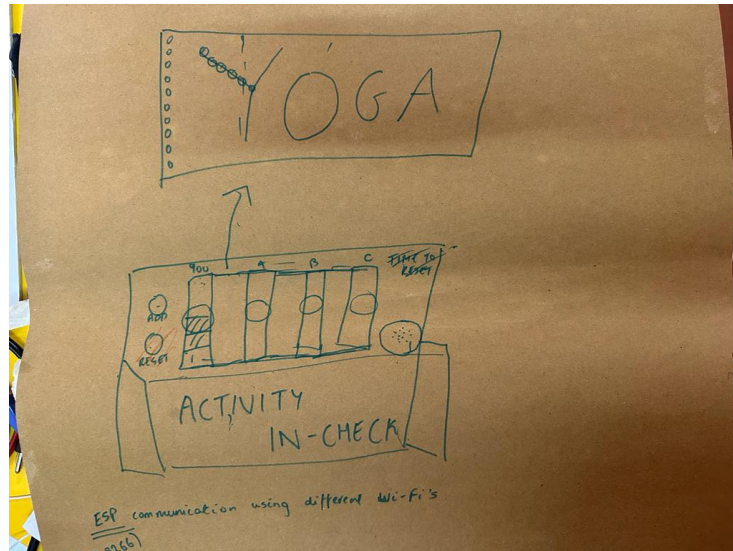 YOGA
YOU A B C
TIME TO
RESET
ADD
RESET
1
ACTIVITY
IN-CHECK
ESP communication using different Wi-Fi's
8266)